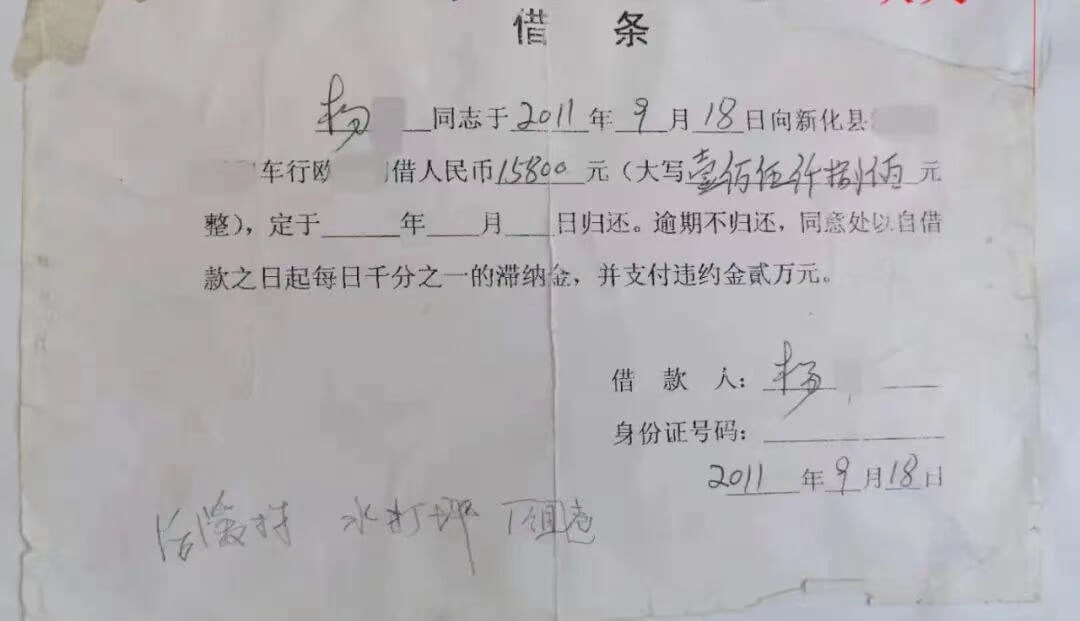 借 条
杨 同志于2011年9月18日向新化县
车行欧 借人民币15800元（大写壹佰伍仟捌佰元
整），定于______年____月____日归还。逾期不归还，同意处以自借
款之日起每日千分之一的滞纳金，并支付违约金贰万元。
借 款 人：杨
身份证号码：
2011年9月18日
水打坪